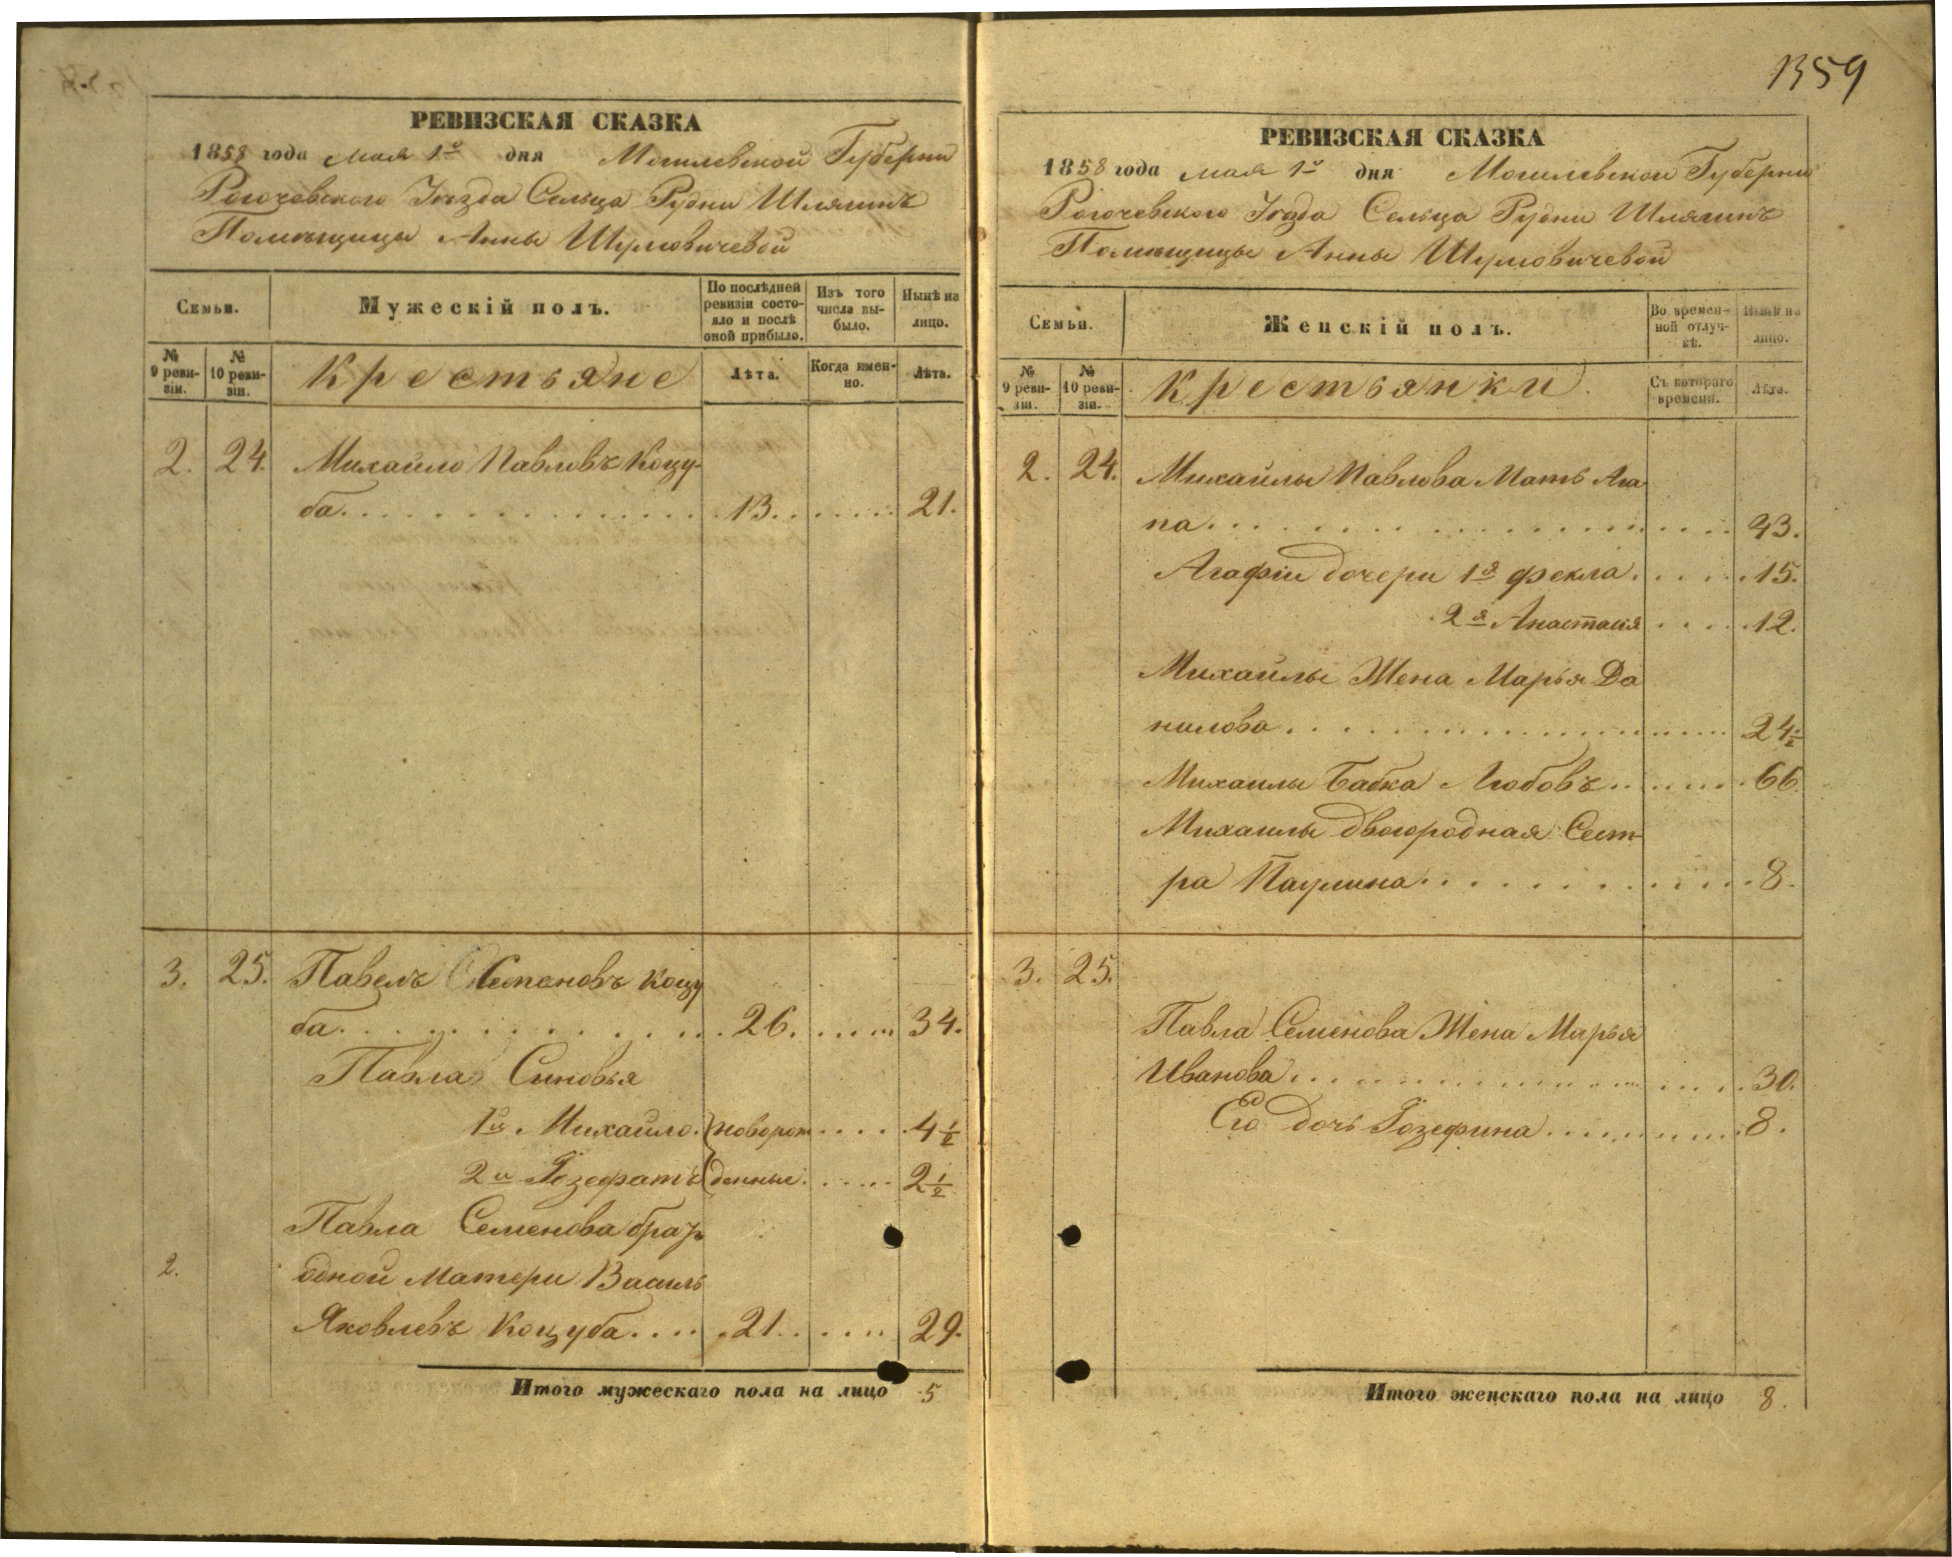 1359
РЕВИЗСКАЯ СКАЗКА
1858 года мая 1го дня Могилевской Губерніи
Рогачевскаго Уѣзда Сельца Рудни Шлягинъ
Помѣщицы Анны Шумовичевой
Семьи. Мужескій полъ. По послѣдней ревизіи состояло и послѣ оной прибыло. Изъ того числа выбыло. Нынѣ на лицо.
№ 9 ревизіи. № 10 ревизіи. Крестьяне Лѣта. Когда именно. Лѣта.
2. 24. Михайло Павловъ Коцу-
ба 13. 21.
3. 25. Павелъ Семеновъ Коцу
ба 26. 34.
Павла Сыновья
1й Михайло новорож 4 1/2
2й Іозефатъ денные 2 1/2
Павла Семенова братъ
2. одной Матери Василь
Яковлевъ Коцуба 21. 29.
Итого мужескаго пола на лицо 5
РЕВИЗСКАЯ СКАЗКА
1858 года мая 1го дня Могилевской Губерніи
Рогачевскаго Уѣзда Сельца Рудни Шлягинъ
Помѣщицы Анны Шумовичевой
Семьи. Женскій полъ. Во временной отлучкѣ. Нынѣ на лицо.
№ 9 ревизіи. № 10 ревизіи. Крестьянки. Съ котораго времени. Лѣта.
2. 24. Михайлы Павлова Мать Ага
па 43.
Агафіи дочери 1я Фекла 15.
2я Анастасія 12.
Михайлы Жена Марья Да
нилова 24 1/2
Михайлы Бабка Любовь 66.
Михайлы двоюродная Сест-
ра Паулина 8.
3. 25.
Павла Семенова Жена Марья
Иванова 30.
Его дочь Іозефина 8.
Итого женскаго пола на лицо 8.